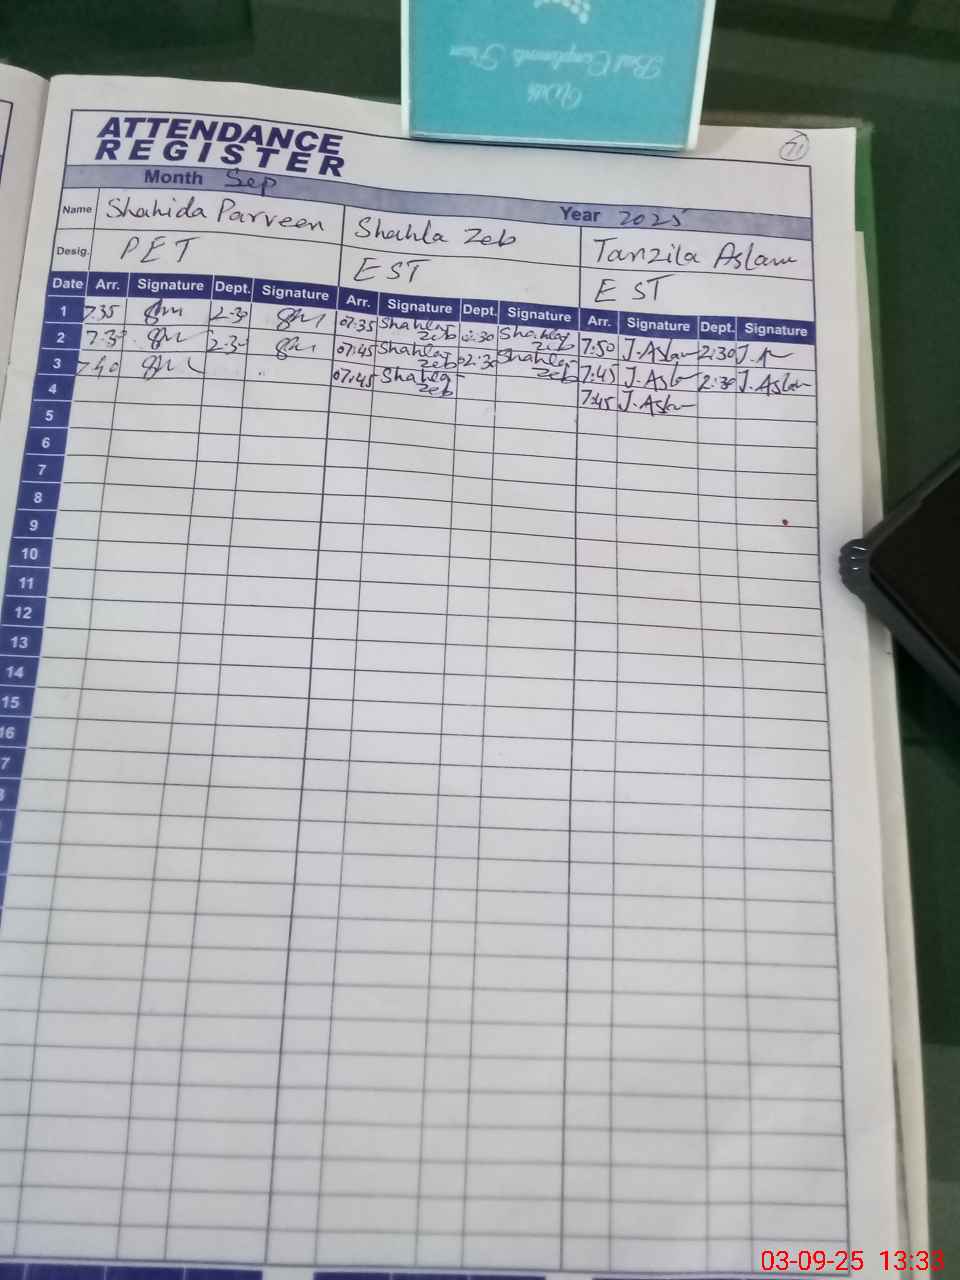 With
Best Compliments From
71
ATTENDANCE
REGISTER
Month Sep Year 2025
Name Shahida Parveen Shahla Zeb Tanzila Aslam
Desig. PET EST EST
Date Arr. Signature Dept. Signature Arr. Signature Dept. Signature Arr. Signature Dept. Signature
1 7.35 2-30 07:35 Shahla Zeb 2:30 Shahla Zeb 7:50 J.Aslam 2:30
2 7.30 2-30 07:45 Shahla Zeb 02:30 Shahla Zeb 7:45 J.Aslam 2:30 J.Aslam
3 7.40 07:45 Shahla Zeb 7:45 J.Aslam
4
5
6
7
8
9
10
11
12
13
14
15
16
7
03-09-25 13:33